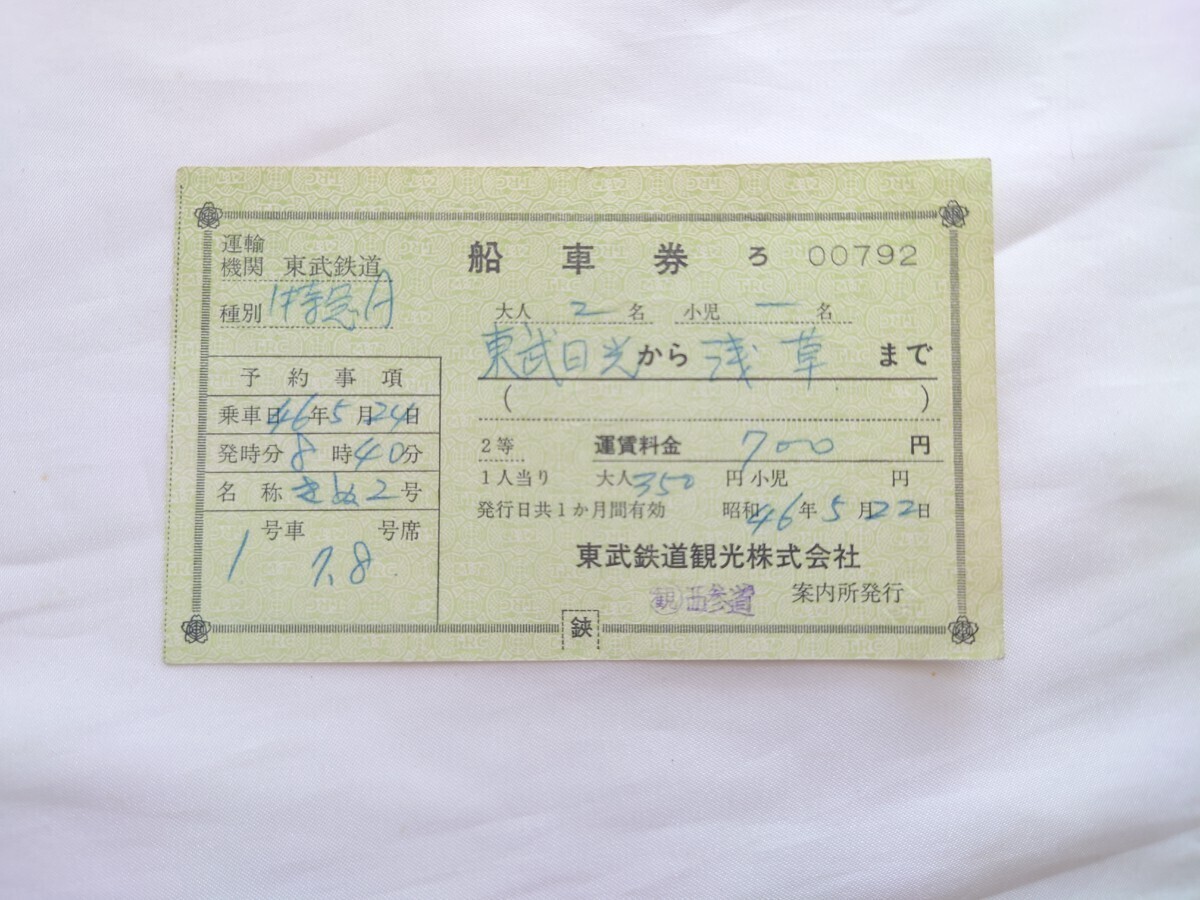 運輸
機関 東武鉄道
種別 特急
予約事項
乗車日 46年5月24日
発時分 8時40分
名称 きぬ2号
号車 号席
1 7.8
船車券 ろ 00792
大人 2名 小児 一名
東武日光から浅草まで
( )
2等 運賃料金 700円
1人当り 大人350円 小児 円
発行日共1か月間有効 昭和46年5月22日
東武鉄道観光株式会社
観 西参道 案内所発行
鋏